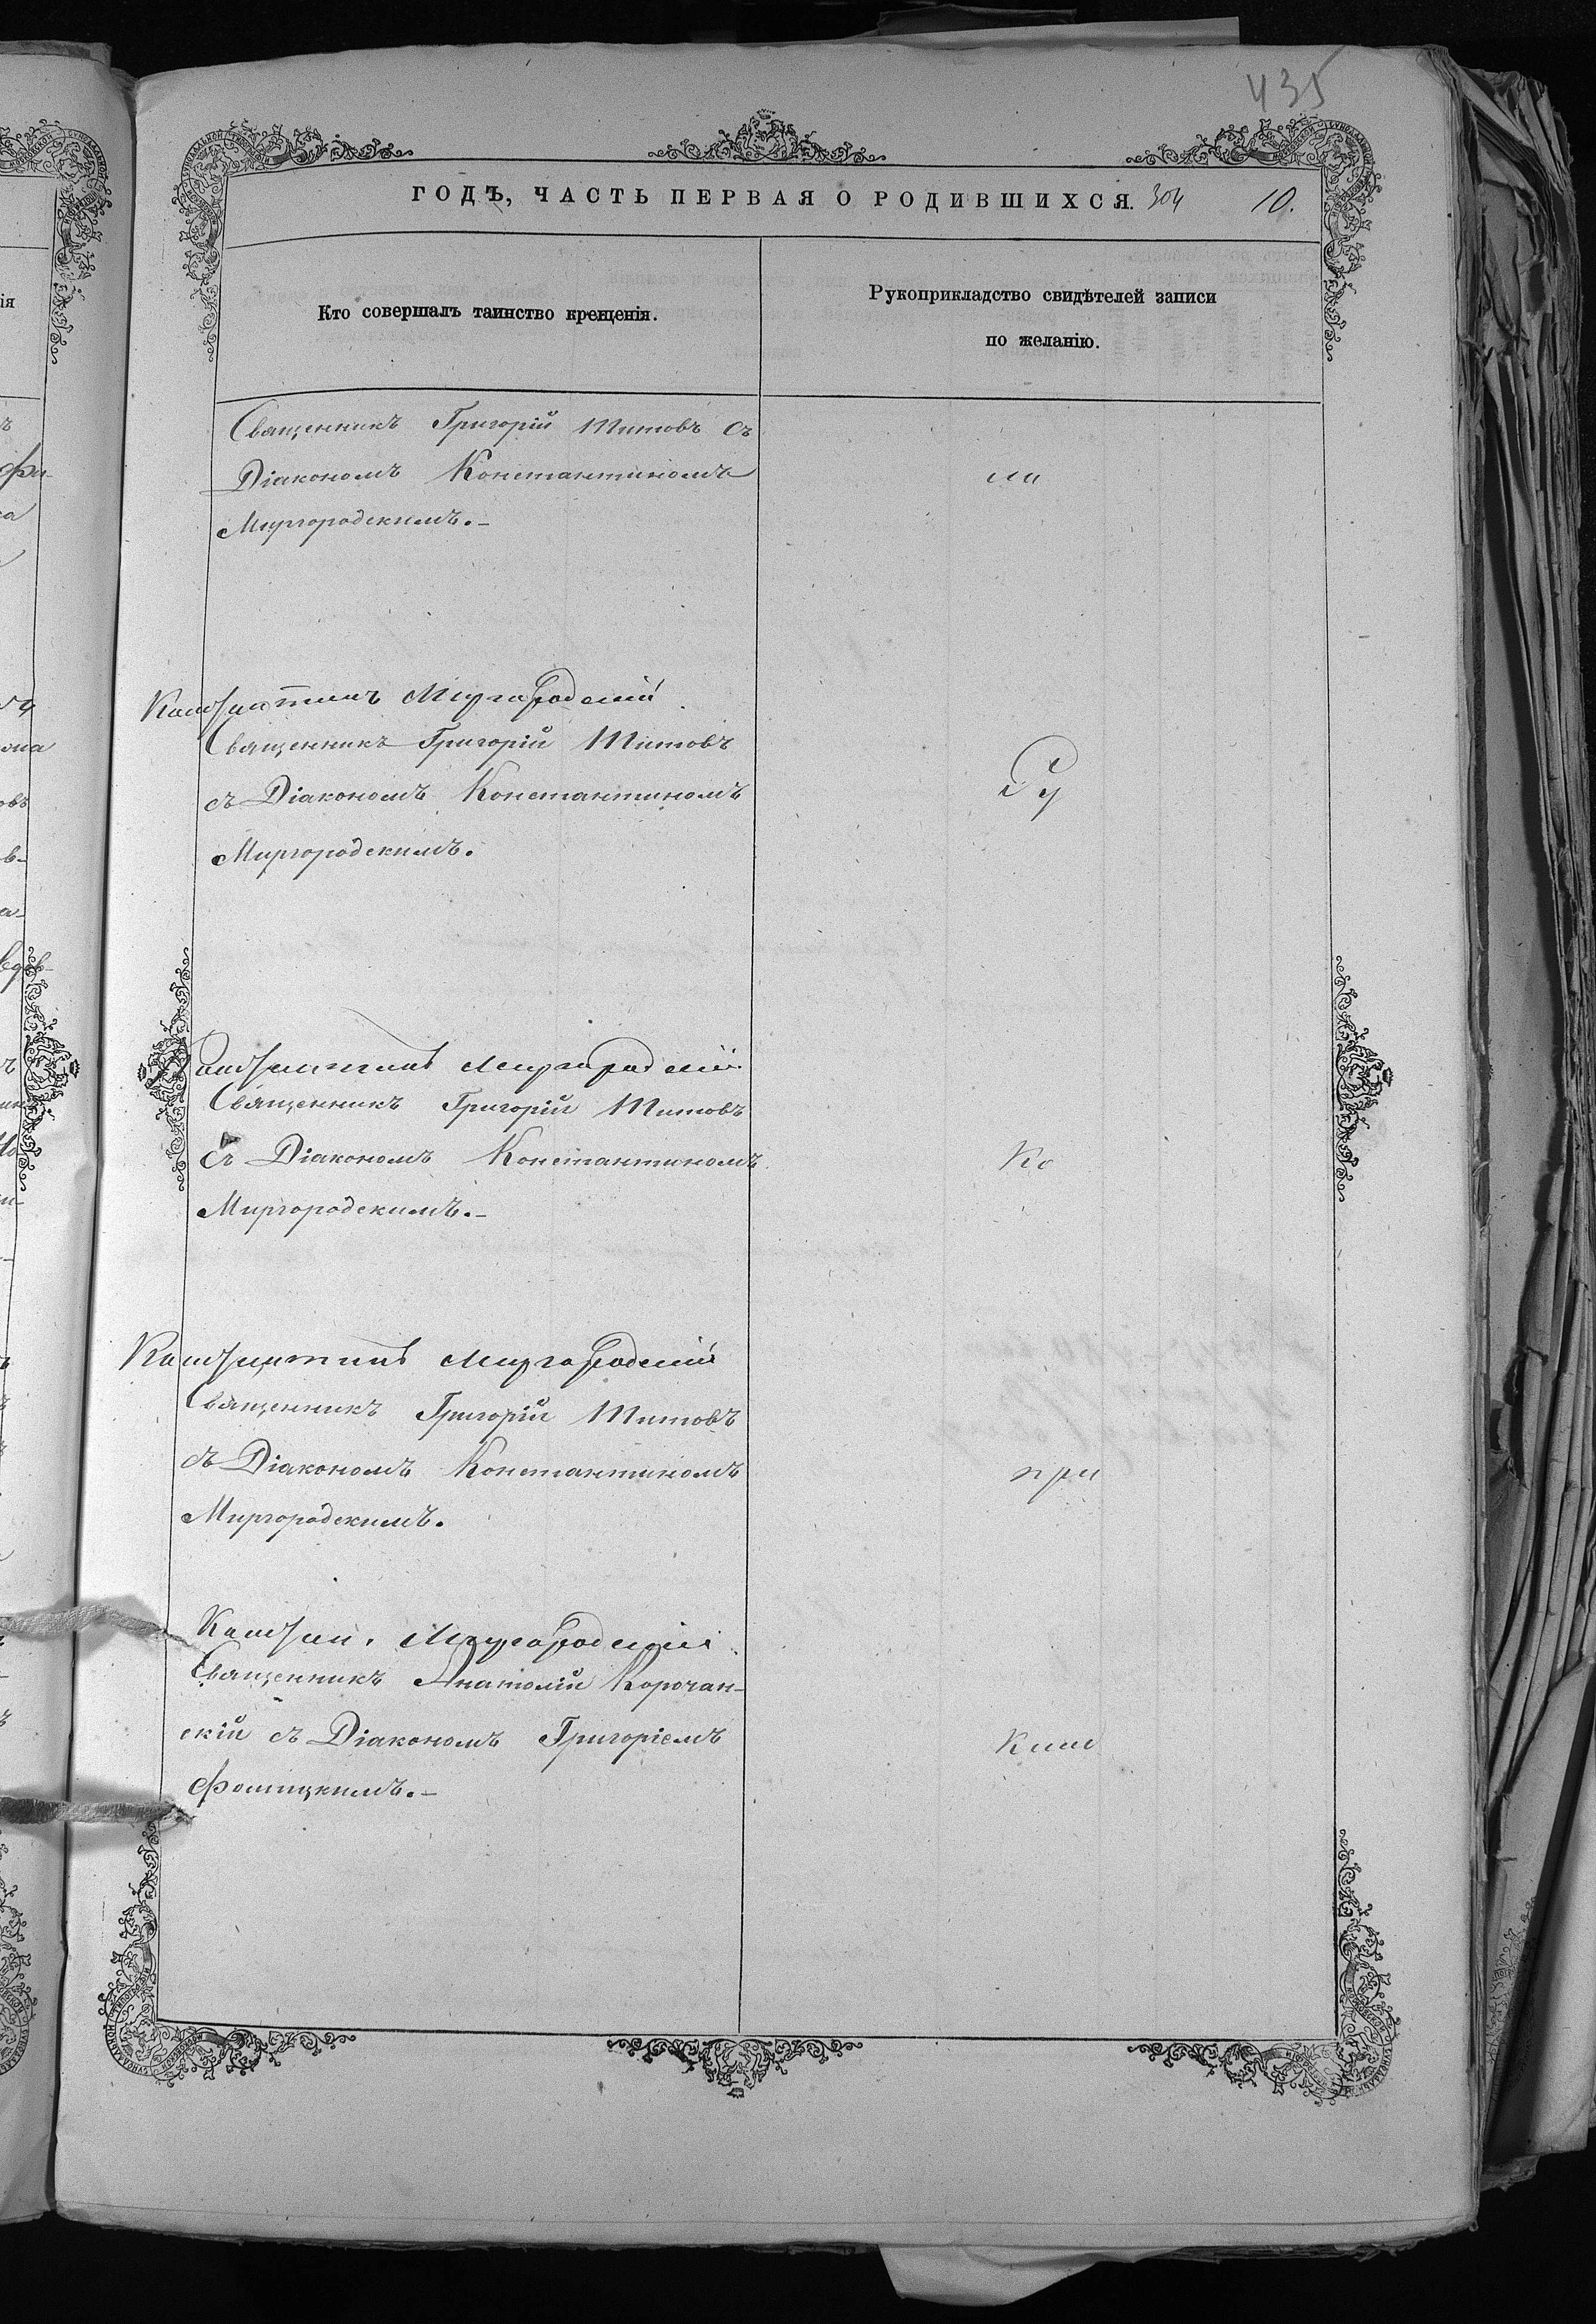 435
ГОДЪ, ЧАСТЬ ПЕРВАЯ О РОДИВШИХСЯ. 304 10.
Кто совершалъ таинство крещенія.
Рукоприкладство свидѣтелей записи
по желанію.
Священникъ Григорій Титовъ съ
Діакономъ Константиномъ
Миргородскимъ.–
Константинъ Миргородскій
Священникъ Григорій Титовъ
съ Діакономъ Константиномъ
Ру
Миргородскимъ.
Константинъ Миргородскій
Священникъ Григорій Титовъ
съ Діакономъ Константиномъ
Ко
Миргородскимъ.–
Константинъ Миргородскій
Священникъ Григорій Титовъ
съ Діакономъ Константиномъ
при
Миргородскимъ.
Констан. Миргородскій
Священникъ Анатолій Корочан-
скій съ Діакономъ Григоріемъ
Фомицкимъ.–